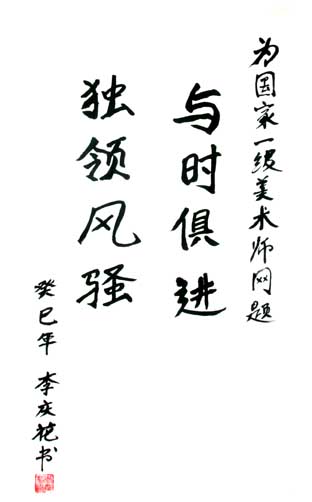 为国家一级美术师网题
与时俱进
独领风骚
癸巳年 李庆花书